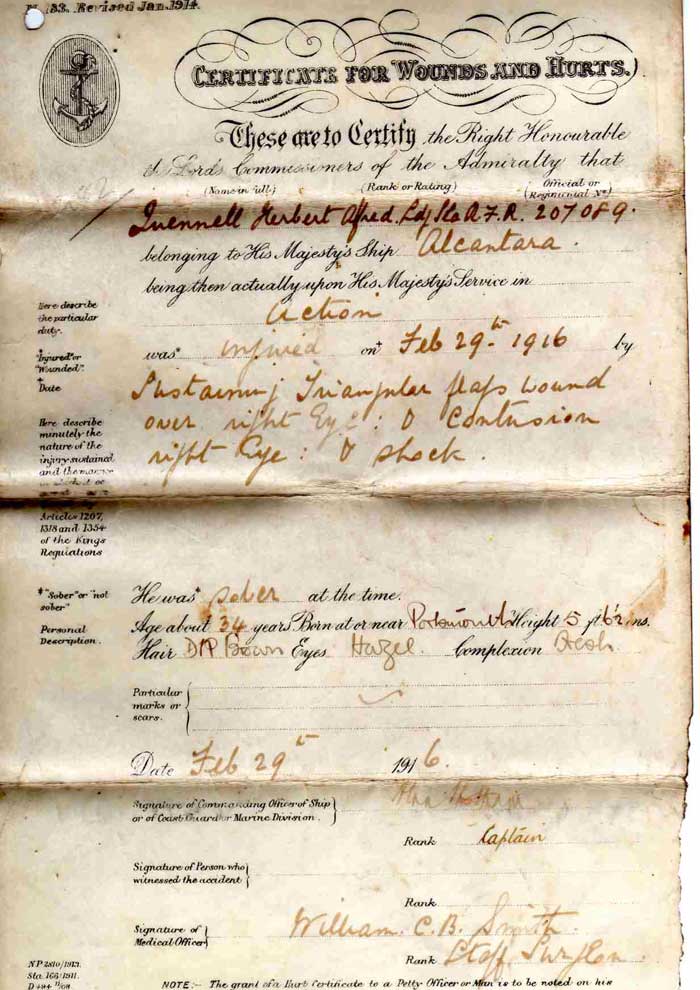 33. Revised Jan. 1914.
CERTIFICATE FOR WOUNDS AND HURTS.
These are to Certify the Right Honourable
Lords Commissioners of the Admiralty that
(Name in full) (Rank or Rating) (Official or Regimental No)
Quennell Herbert Alfred. Ldg 207089.
belonging to His Majesty's Ship Alcantara.
being then actually upon His Majesty's Service in
Here describe
the particular
duty.
action
*"Injured" or
"Wounded".
† Date
was* injured on† Feb 29th 1916 by
Sustaining Triangular flap wound
over right Eye: & contusion
right Eye: & shock.
Here describe
minutely the
nature of the
injury sustained
and the manner
Articles 1207,
1318 and 1354
of the Kings
Regulations
*"Sober" or "not
sober"
He was* sober at the time.
Personal
Description.
Age about 34 years Born at or near Portsmouth Height 5 ft 6½ ins.
Hair Brown Eyes Hazel. Complexion Fresh.
Particular
marks or
scars.
Date Feb 29th 1916.
Signature of Commanding Officer of Ship
or of Coast Guard or Marine Division.
Rank Captain
Signature of Person who
witnessed the accident
Rank
Signature of
Medical Officer
William. C. B. Smith.
Rank Staff Surgeon
N P 2810/1913.
Sta. 166/1911.
NOTE:- The grant of a Hurt Certificate to a Petty Officer or Man is to be noted on his